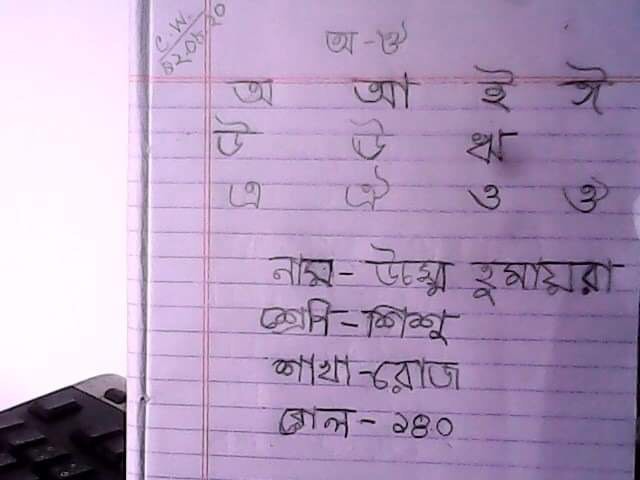 C.W.
02.08.20
অ-ঔ
অ আ ই ঈ
উ ঊ ঋ
এ ঐ ও ঔ
নাম- উম্মে হুমায়রা
শ্রেণি-শিশু
শাখা-রোজ
রোল- ১৪০